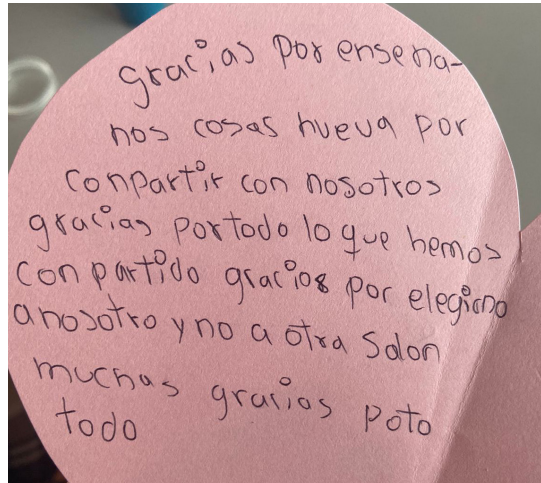 gracias por ensena-
nos cosas nueva por
conpartir con nosotros
gracias portodo lo que hemos
conpartido gracios por elegirno
anosotro y no a otra Salon
muchas gracias poto
todo